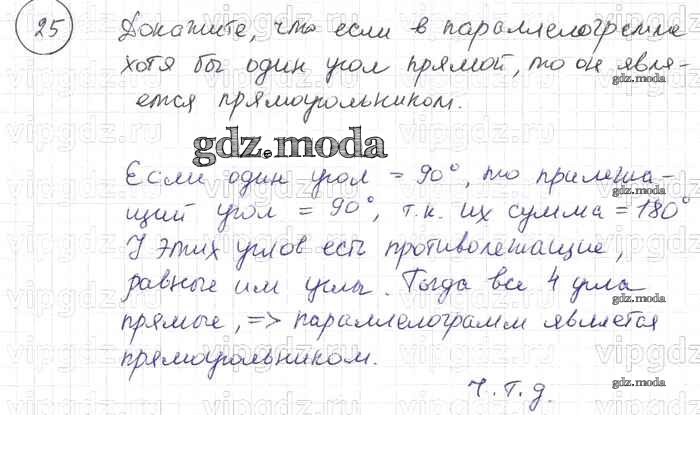 25 Докажите, что если в параллелограмме
хотя бы один угол прямой, то он явля-
ется прямоугольником.
gdz.moda
gdz.moda
Если один угол = 90°, то прилежа-
щий угол = 90°, т.к. их сумма = 180°
gdz.moda
У этих углов есть противолежащие,
равные им углы. Тогда все 4 угла
gdz.moda
прямые, => параллелограмм является
прямоугольником.
Ч.т.д.
gdz.moda
vipgdz.ru